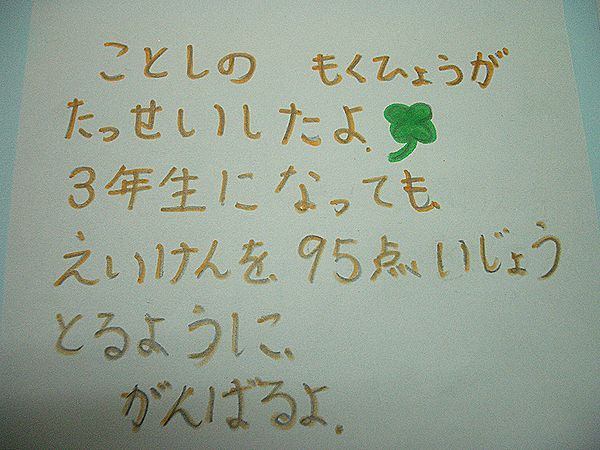 ことしの もくひょうが
たっせいしたよ.
3年生になっても、
えいけんを、95点、いじょう
とるように、
がんばるよ.